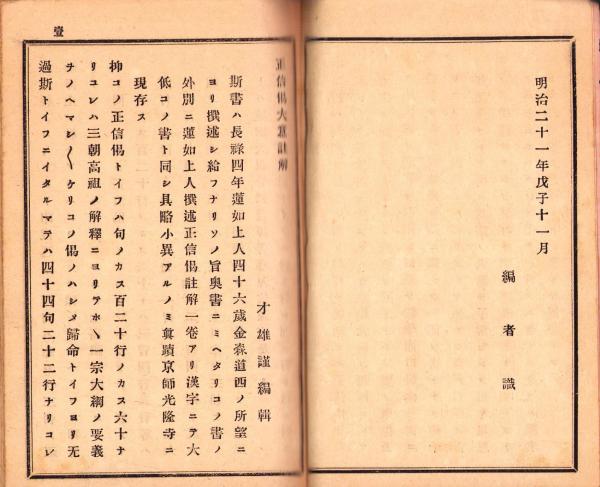 明治二十一年戊子十一月
編者識
壹
正信偈大意註解
才雄謹編輯
斯書ハ長祿四年蓮如上人四十六歲金森道西ノ所望ニ
ヨリ撰述シ給フナリソノ旨奥書ニミヘタリコノ書ノ
外別ニ蓮如上人撰述正信偈註解一卷アリ漢字ニテ大
低コノ書ト同シ具略小異アルノミ眞蹟京師光隆寺ニ
現存ス
抑コノ正信偈トイフハ句ノカス百二十行ノカス六十ナ
リコレハ三朝高祖ノ解釋ニヨリテホヽ一宗大綱ノ要義
チノヘマシ〱ケリコノ偈ノハシメ歸命トイフヨリ无
過斯トイフニイタルマテハ四十四句二十二行ナリコレ